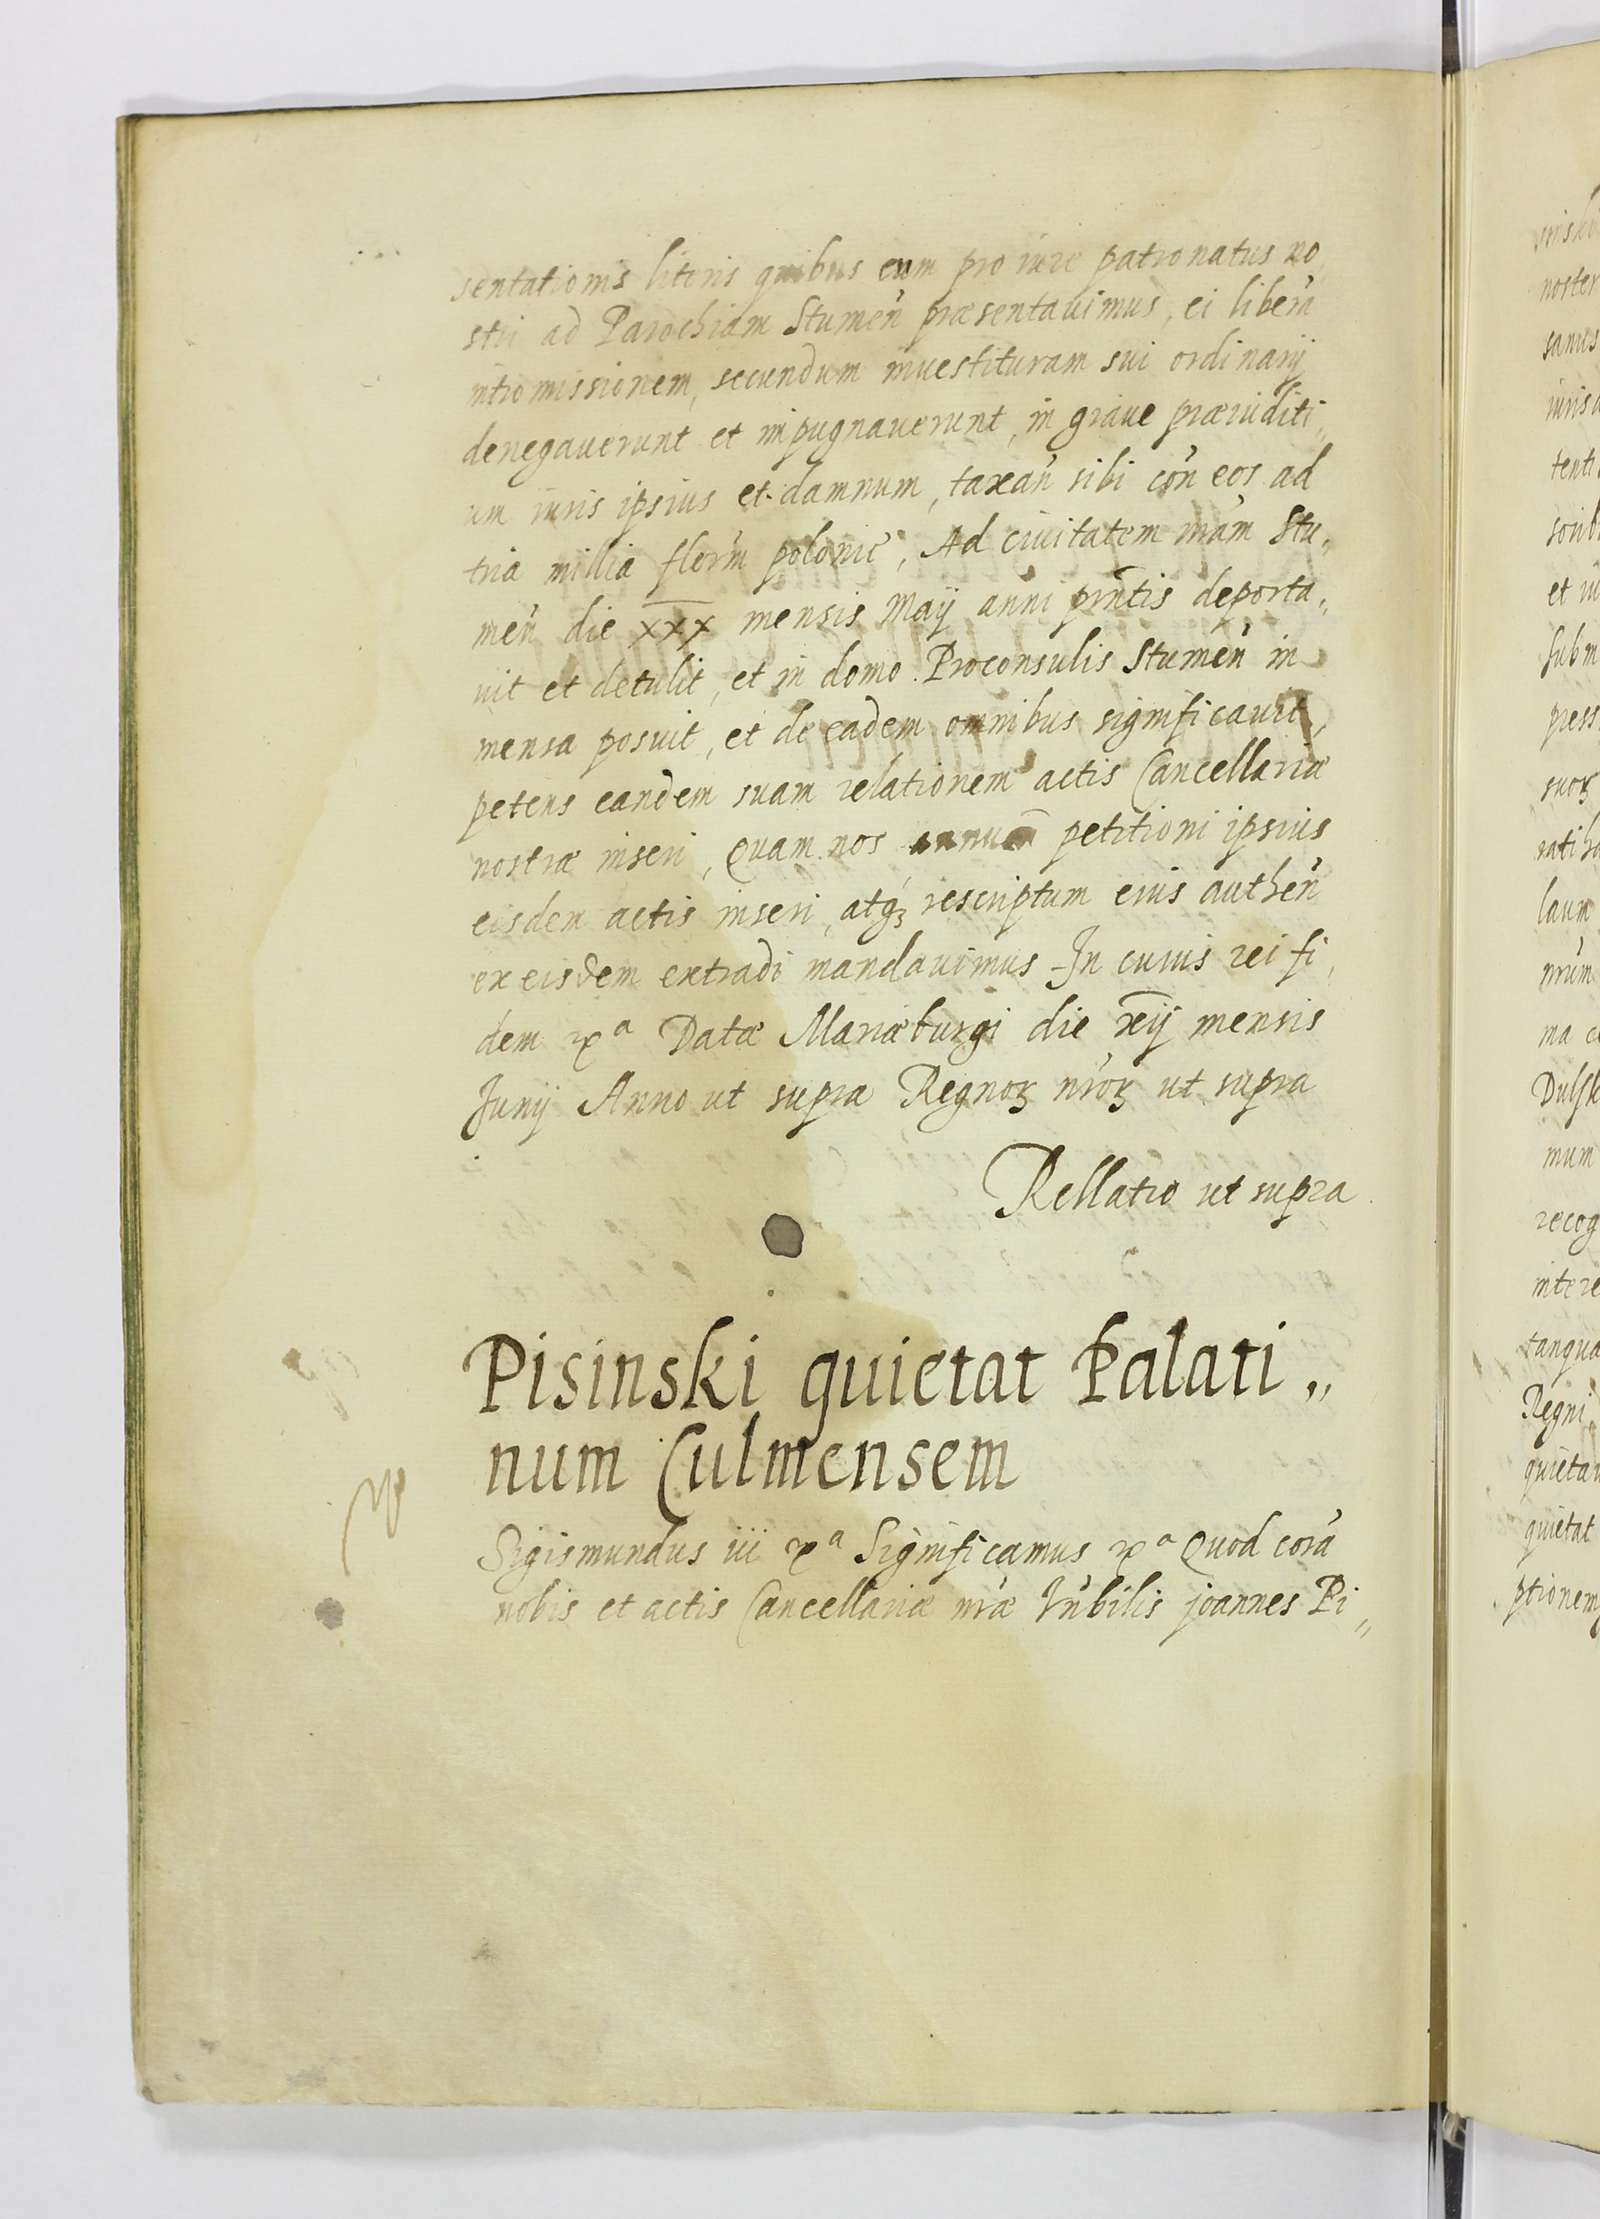 sentationis literis quibus eum pro iure patronatus no
stri ad Parochiam Stumeń præsentauimus, ei liberã
intromissionem, secundum inuestituram sui ordinarij
denegauerunt et inpugnauerunt, in graue præiuditi„
um iuris ipsius et damnum, taxań sibi coń eos ad
tria millia floŕm polonić, Ad ciuitatem nŕam Stu„
meń die xxx mensis Maij anni pŕntis deporta„
uit et detulit, et in domo Proconsulis Stumeń in
mensa posuit, et de eadem omnibus significauit,
petens eandem suam relationem actis Cancellariæ
nostræ inseri, Quam nos petitioni ipsius
eisdem actis inseri, atq́ꝫ rescriptum eius autheń
ex eisdem extradi mandauimus In cuius rei fi,
dem ꝛcª Datæ Mariæburgi die xij mensis
Junij Anno ut supra Regnoꝝ nŕoꝝ ut supra
Rellatio ut supra
Pisinski quietat Palati„
num Culmensem
Sigismundus iii ꝛcª Significamus ꝛcª Quod corã
nobis et actis Cancellariæ nŕæ joannes Pi„
noster
sanus
et
press
suoꝝ
nŕum
mum
recog
intere
tanqua
Regni
quietat
ptionem